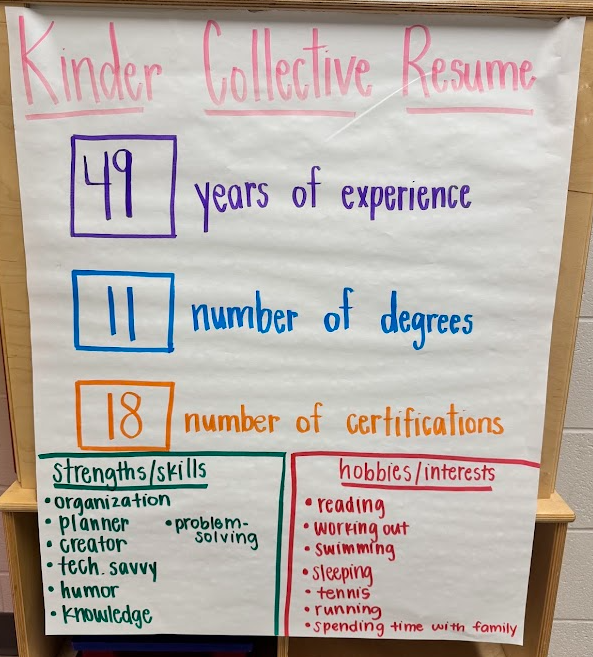 Kinder Collective Resume
49 years of experience
11 number of degrees
18 number of certifications
strengths/skills
• organization
• planner
• creator
• tech. savvy
• humor
• knowledge
• problem-
solving
hobbies/interests
• reading
• working out
• swimming
• sleeping
• tennis
• running
• spending time with family